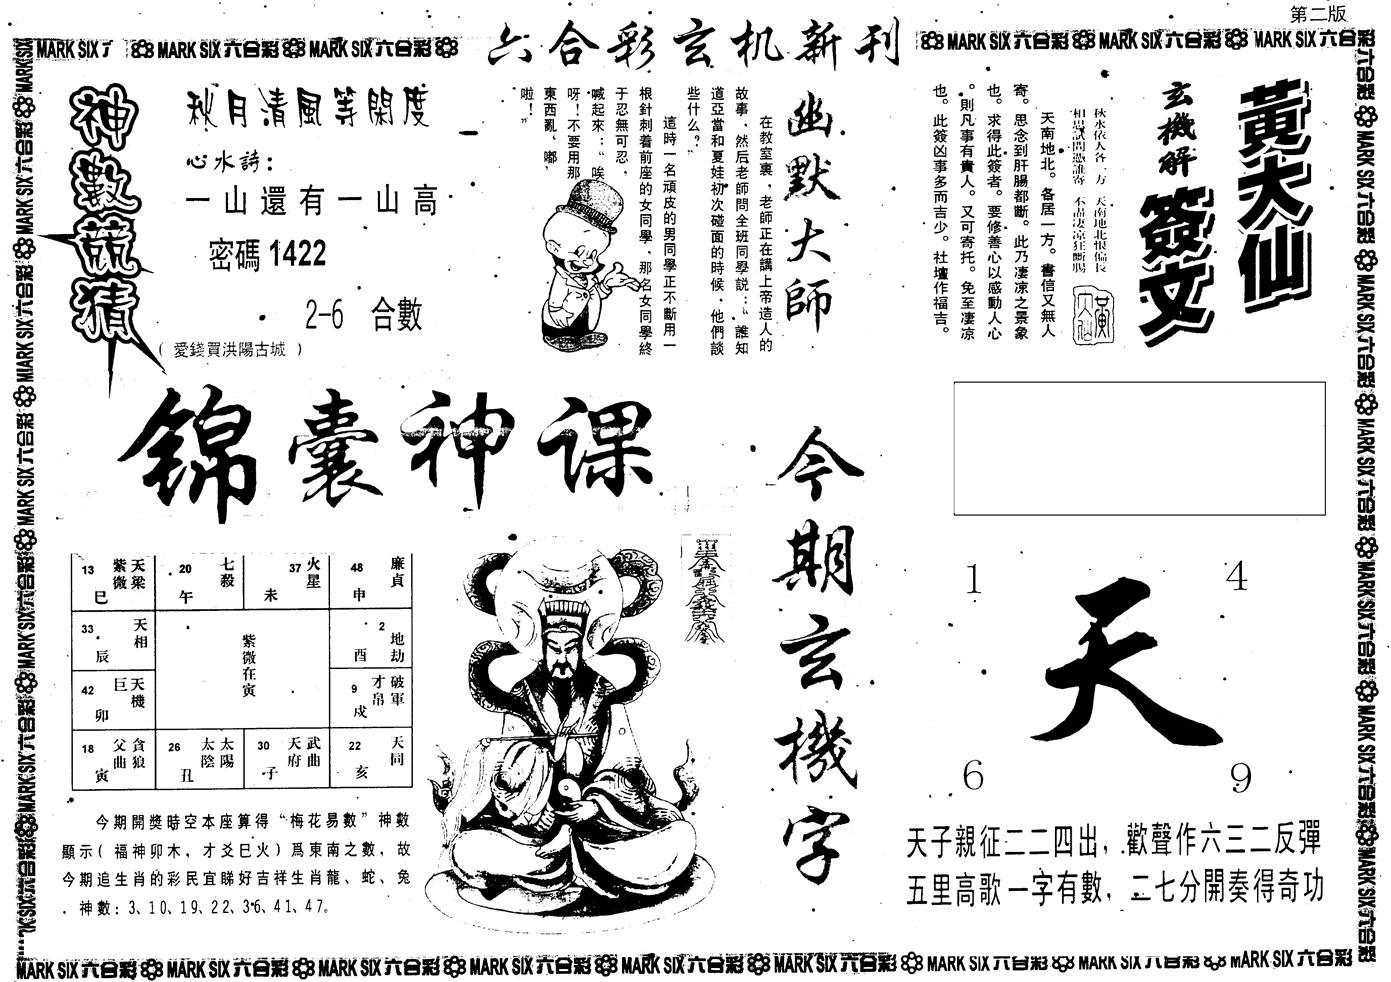 第二版
六合彩玄机新刊
MARK SIX 六合彩 MARK SIX 六合彩 MARK SIX 六合彩
MARK SIX 六合彩 MARK SIX 六合彩 MARK SIX 六合彩
神數競猜
秋月清風等閑度
心水詩：
一山還有一山高
密碼1422
2-6 合數
（愛錢買洪陽古城）
幽默大師
在教室裏，老師正在講上帝造人的
故事，然后老師問全班同學説：“誰知
道亞當和夏娃初次碰面的時候，他們談
些什么？”
這時一名頑皮的男同學正不斷用一
根針刺着前座的女同學，那名女同學終
于忍無可忍，
喊起來：“唉
呀！不要用那
東西亂，嘟
啦！”
黃大仙
簽文
玄機解
秋水依人各一方 天南地北恨偏長
相思試問憑誰寄 不盡凄凉狂斷腸
黃大仙
天南地北。各居一方。書信又無人
寄。思念到肝腸都斷。此乃凄凉之景象
也。求得此簽者。要修善心以感動人心
。則凡事有貴人。又可寄托。免至凄凉
也。此簽凶事多而吉少。社壇作福吉。
锦囊神课
13 紫微 天梁 巳
20 七殺 午
37 火星 未
48 廉貞 申
33 天相 辰
紫微在寅
2 地劫 酉
42 巨 天機 卯
9 才帛 破軍 戌
18 父曲 貪狼 寅
26 太陰 太陽 丑
30 天府 武曲 子
22 天同 亥
今期開獎時空本座算得“梅花易數”神數
顯示（福神卯木，才爻巳火）爲東南之數，故
今期追生肖的彩民宜睇好吉祥生肖龍、蛇、兔
。神數：3、10、19、22、36、41、47。
今期玄機字
1
4
天
6
9
天子親征二二四出，歡聲作六三二反彈
五里高歌一字有數，二七分開奏得奇功
MARK SIX 六合彩 MARK SIX 六合彩 MARK SIX 六合彩 MARK SIX 六合彩 MARK SIX 六合彩 MARK SIX 六合彩 MARK SIX 六合彩 MARK SIX 六合彩 MARK SIX 六合彩